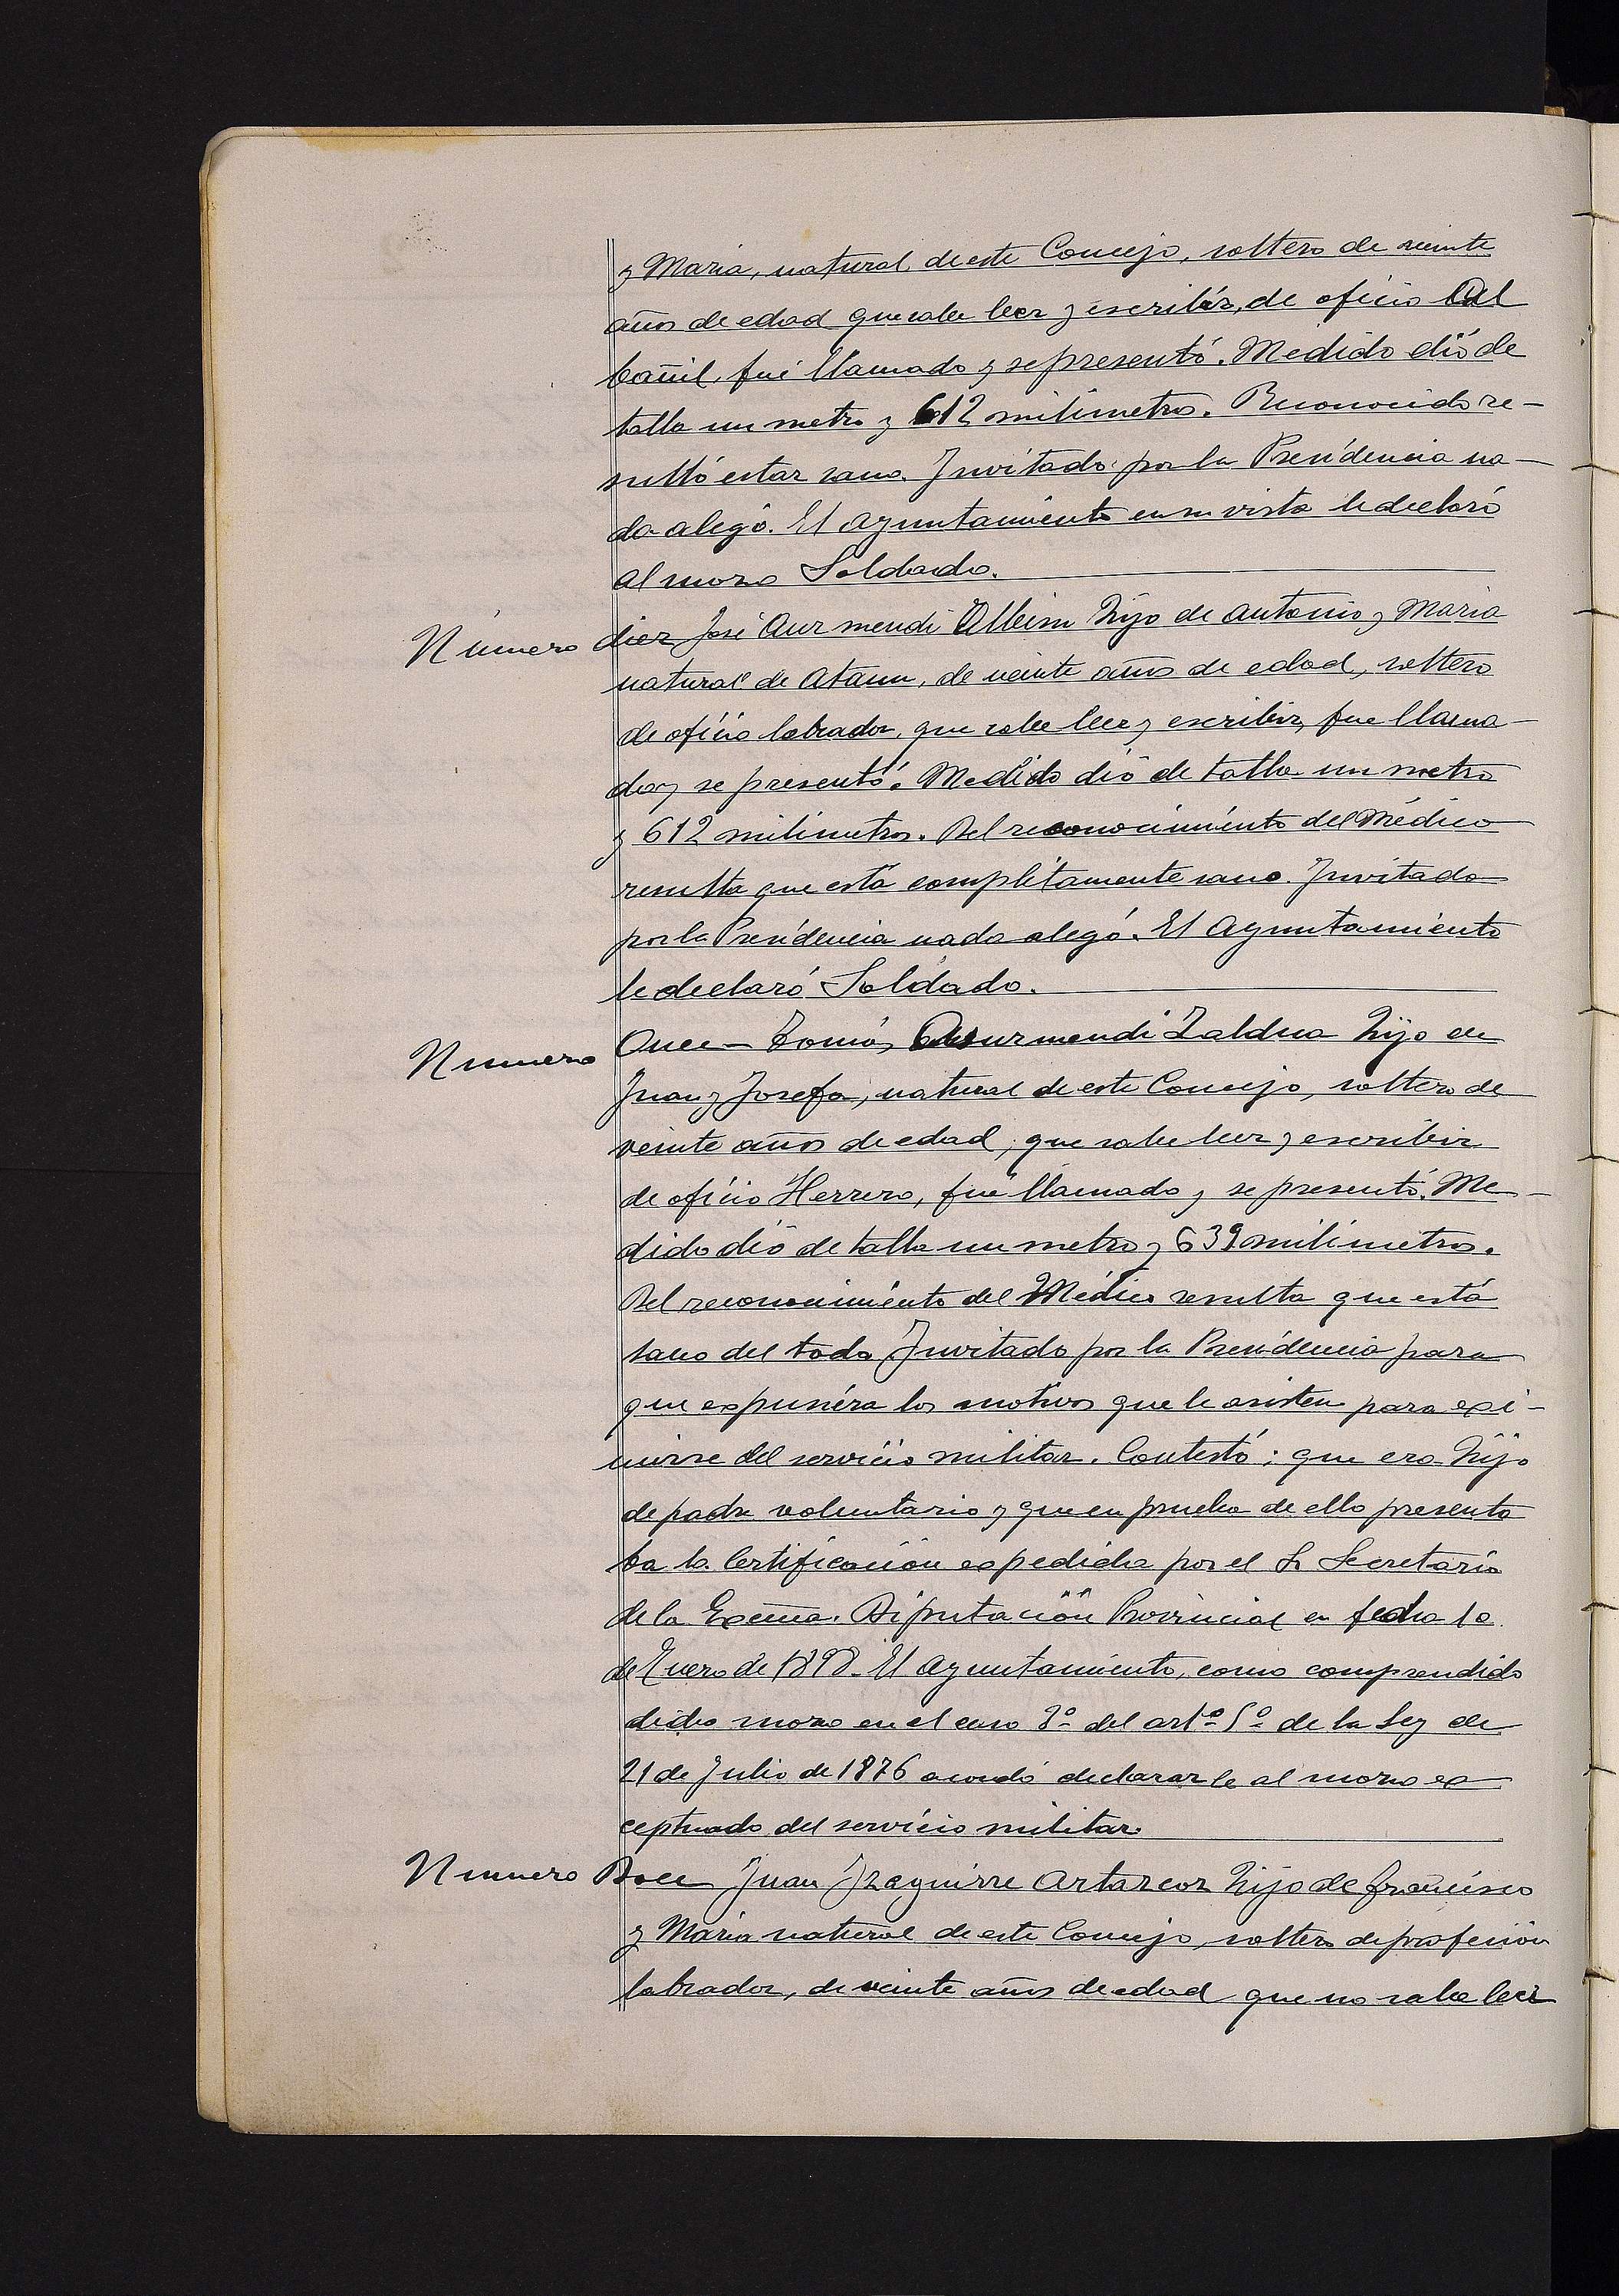 y Maria, natural de este Concejo, soltero de veinte
años de edad que sabe leer y escribir, de oficio Al
bañil, fué llamado y se presentó. Medido dió de
talla un metro y 612 milimetros. Reconocido re-
sultó estar sano. Invitado por la Presidencia na-
da alegó. El Ayuntamiento en su vista le declaró
al mozo Soldado.
Número diez José Aurmendi Albisu hijo de Antonio y Maria
natural de Ataun, de veinte años de edad, soltero
de oficio labrador, que sabe leer y escribir, fue llama-
do y se presentó. Medido dió de talla un metro
y 612 milimetros. Del reconocimiento del Médico
resulta que está completamente sano. Invitado
por la Presidencia nada alegó. El Ayuntamiento
le declaró Soldado.
Numero Once - Tomás Ausurmendi Zaldua hijo de
Juan y Josefa, natural de este Concejo, soltero de
veinte años de edad, que sabe leer y escribir
de oficio Herrero, fué llamado y se presentó. Me-
dido dió de talla un metro y 639 milimetros.
Del reconocimiento del Médico resulta que está
sano del todo Invitado por la Presidencia para
que expusiéra los motivos que le asisten para exi-
mirse del servicio militar. Contestó: que era hijo
de padre voluntario y que en prueba de ello presenta
ba la Certificación expedida por el Sr Secretario
de la Excma. Diputación Provincial en fecha 10
de Enero de 1898. El Ayuntamiento, como comprendido
dicho mozo en el caso 3º del artº 5º de la Ley de
21 de Julio de 1876 acordó declararle al mozo ex
ceptuado del servicio militar.
Numero Doce Juan Izaguirre Artazcoz hijo de francisco
y Maria natural de este Concejo, soltero de profesión
labrador, de veinte años de edad que no sabe leer